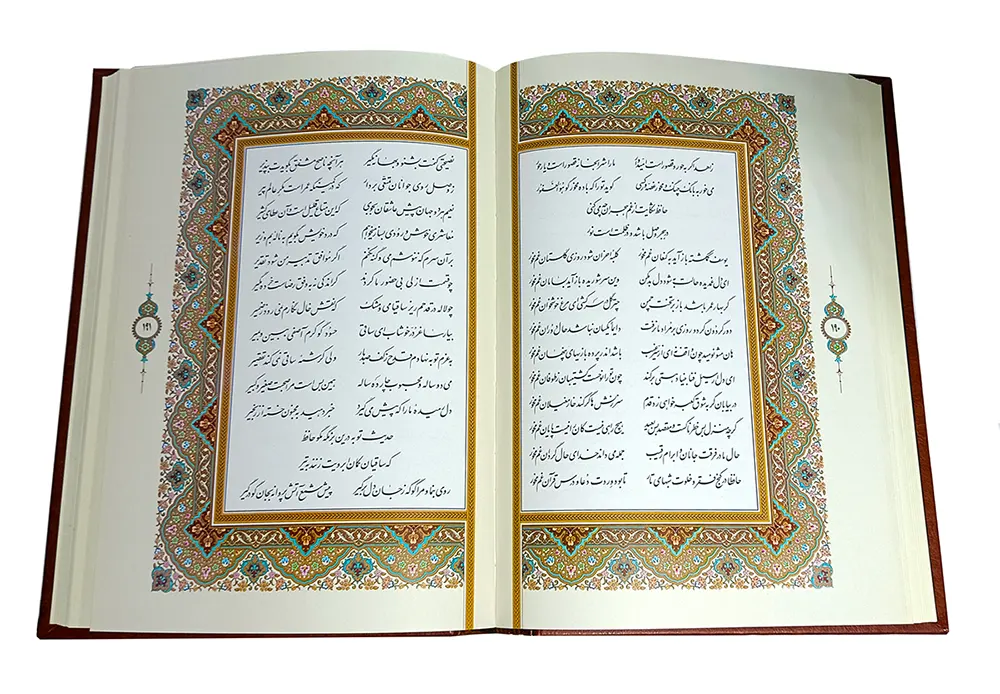 زاهد اگر به حور و قصور است امیدوار ما را شرابخانه قصور است و یار حور
می خور به بانگ چنگ و مخور غصه ور کسی گوید تو را که باده مخور گو هوالغفور
حافظ شکایت از غم هجران چه می‌کنی
در هجر وصل باشد و در ظلمت است نور
یوسف گمگشته بازآید به کنعان غم مخور کلبه احزان شود روزی گلستان غم مخور
ای دل غمدیده حالت به شود دل بد مکن وین سر شوریده بازآید به سامان غم مخور
گر بهار عمر باشد باز بر تخت چمن چتر گل در سر کشی ای مرغ خوشخوان غم مخور
دور گردون گر دو روزی بر مراد ما نرفت دایما یکسان نباشد حال دوران غم مخور
هان مشو نومید چون واقف نه‌ای از سر غیب باشد اندر پرده بازیهای پنهان غم مخور
ای دل ار سیل فنا بنیاد هستی برکند چون تو را نوح است کشتیبان ز طوفان غم مخور
در بیابان گر به شوق کعبه خواهی زد قدم سرزنشها گر کند خار مغیلان غم مخور
گر چه منزل بس خطرناک است و مقصد بس بعید هیچ راهی نیست کان را نیست پایان غم مخور
حال ما در فرقت جانان و ابرام رقیب جمله می‌داند خدای حال گردان غم مخور
حافظا در کنج فقر و خلوت شبهای تار تا بود وردت دعا و درس قرآن غم مخور
۱۹۰
نصیحتی کنمت بشنو و بهانه مگیر هر آنچه ناصح مشفق بگویدت بپذیر
ز وصل روی جوانان تمتعی بردار که در کمینگه عمر است مکر عالم پیر
نعیم هر دو جهان پیش عاشقان بجوی که این متاع قلیل است و آن عطای کثیر
معاشری خوش و رودی بساز می‌خواهم که درد خویش بگویم به ناله بم و زیر
بر آن سرم که ننوشم می و گنه نکنم اگر موافق تدبیر من شود تقدیر
چو قسمت ازلی بی حضور ما کردند گر اندکی نه به وفق رضاست خرده مگیر
چو لاله در قدحم ریز ساقیا می و مشک که نقش خال نگارم نمی‌رود ز ضمیر
بیار ساغر در خوشاب ای ساقی حسود گو کرم آصفی ببین و بمیر
به عزم توبه نهادم قدح ز کف صد بار ولی کرشمه ساقی نمی‌کند تقصیر
می دو ساله و محبوب چارده ساله همین بس است مرا صحبت صغیر و کبیر
دل رمیده ما را که پیش می‌گیرد خبر دهید به مجنون خسته از زنجیر
حدیث توبه در این بزمگه مگو حافظ
که ساقیان کمان ابرویت زنند به تیر
روی بنما و مرا گو که ز جان دل برگیر پیش شمع آتش پروانه به جان گو درگیر
۱۹۱